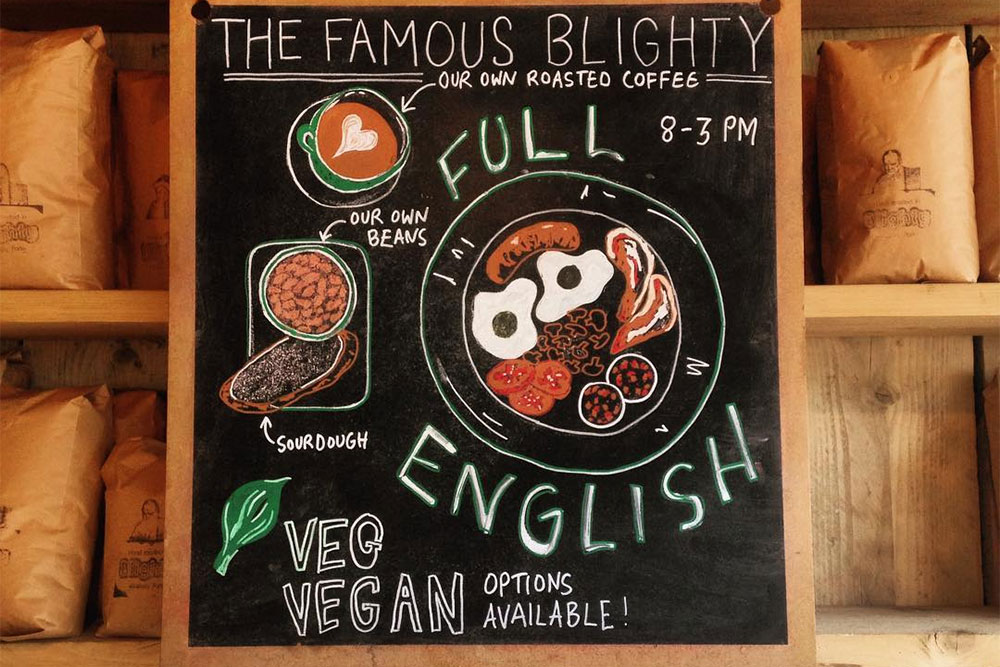 THE FAMOUS BLIGHTY
OUR OWN ROASTED COFFEE
8-3 PM
FULL
ENGLISH
OUR OWN
BEANS
SOURDOUGH
VEG
VEGAN
OPTIONS
AVAILABLE!